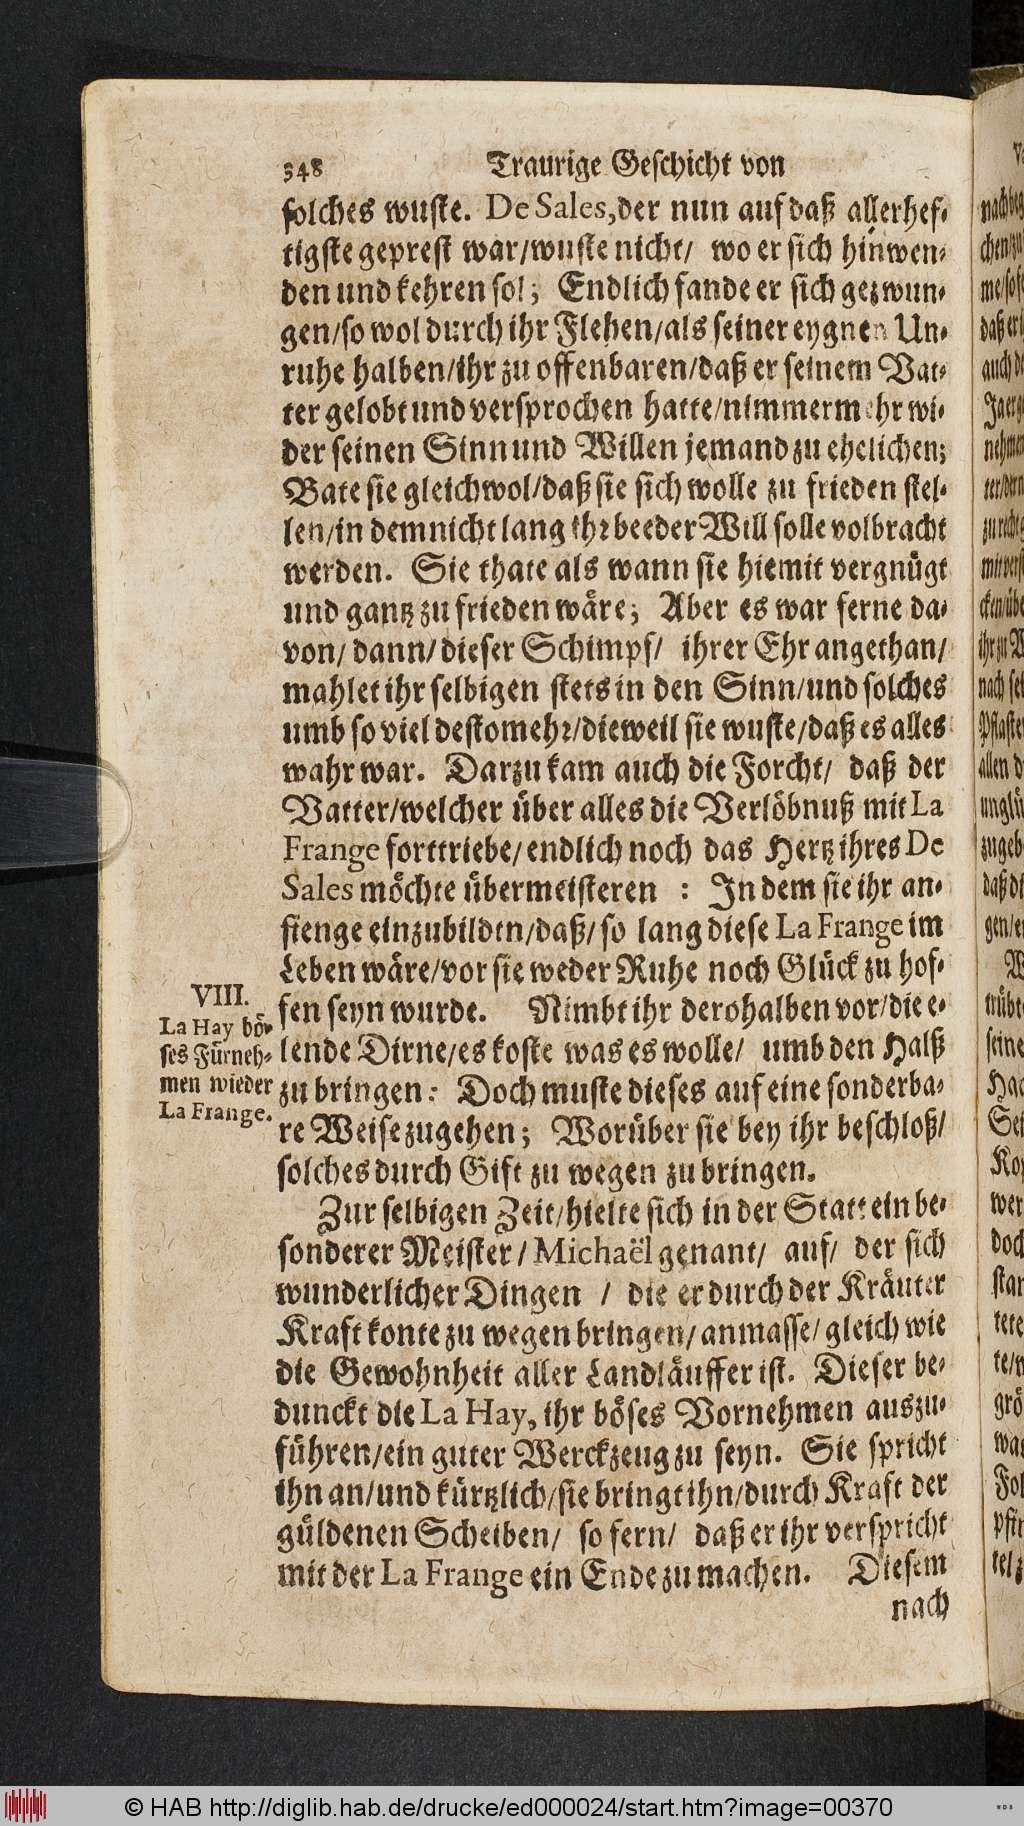 348 Traurige Geschicht von
solches wuste. De Sales, der nun auf daß allerhef-
tigste geprest war/wuste nicht/ wo er sich hinwen-
den und kehren sol; Endlich fande er sich gezwun-
gen/so wol durch ihr Flehen/als seiner eygnen Un-
ruhe halben/ihr zu offenbaren/daß er seinem Vat-
ter gelobt und versprochen hatte/nimmermehr wi-
der seinen Sinn und Willen jemand zu ehelichen;
Bate sie gleichwol/daß sie sich wolle zu frieden stel-
len/in dem nicht lang ihr beeder Will solle volbracht
werden. Sie thate als wann sie hiemit vergnügt
und gantz zu frieden wäre; Aber es war ferne da-
von/ dann/ dieser Schimpf/ ihrer Ehr angethan/
mahlet ihr selbigen stets in den Sinn/und solches
umb so viel destomehr/dieweil sie wuste/daß es alles
wahr war. Darzu kam auch die Forcht/ daß der
Vatter/welcher über alles die Verlöbnuß mit La
Frange forttriebe/endlich noch das Hertz ihres De
Sales möchte übermeisteren : In dem sie ihr an-
fienge einzubilden/daß/so lang diese La Frange im
Leben wäre/vor sie weder Ruhe noch Glück zu hof-
fen seyn wurde. Nimbt ihr derohalben vor/die e-
lende Dirne/es koste was es wolle/ umb den Halß
zu bringen: Doch muste dieses auf eine sonderba-
re Weise zugehen; Worüber sie bey ihr beschloß/
solches durch Gift zu wegen zu bringen.
VIII.
La Hay bö-
ses Fürneh-
men wieder
La Frange.
Zur selbigen Zeit/hielte sich in der Statt ein be-
sonderer Meister/Michaël genant/ auf/ der sich
wunderlicher Dingen / die er durch der Kräuter
Kraft konte zu wegen bringen/anmasse/gleich wie
die Gewohnheit aller Landläuffer ist. Dieser be-
dunckt die La Hay, ihr böses Vornehmen auszu-
führen/ein guter Werckzeug zu seyn. Sie spricht
ihn an/und kürtzlich/sie bringt ihn/durch Kraft der
güldenen Scheiben/ so fern/ daß er ihr verspricht
mit der La Frange ein Ende zu machen. Diesem
nach
© HAB http://diglib.hab.de/drucke/ed000024/start.htm?image=00370